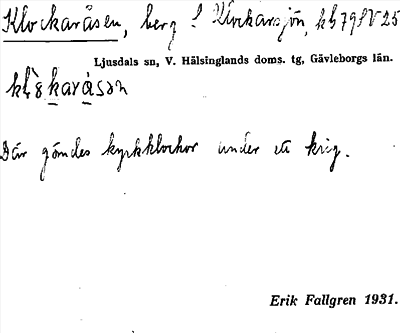 Klockaråsen, berg S Klockarsjön, kb 79 SV 25
Ljusdals sn, V. Hälsinglands doms. tg, Gävleborgs län.
Där gömdes kyrkklockor under ett krig.
Erik Fallgren 1931.